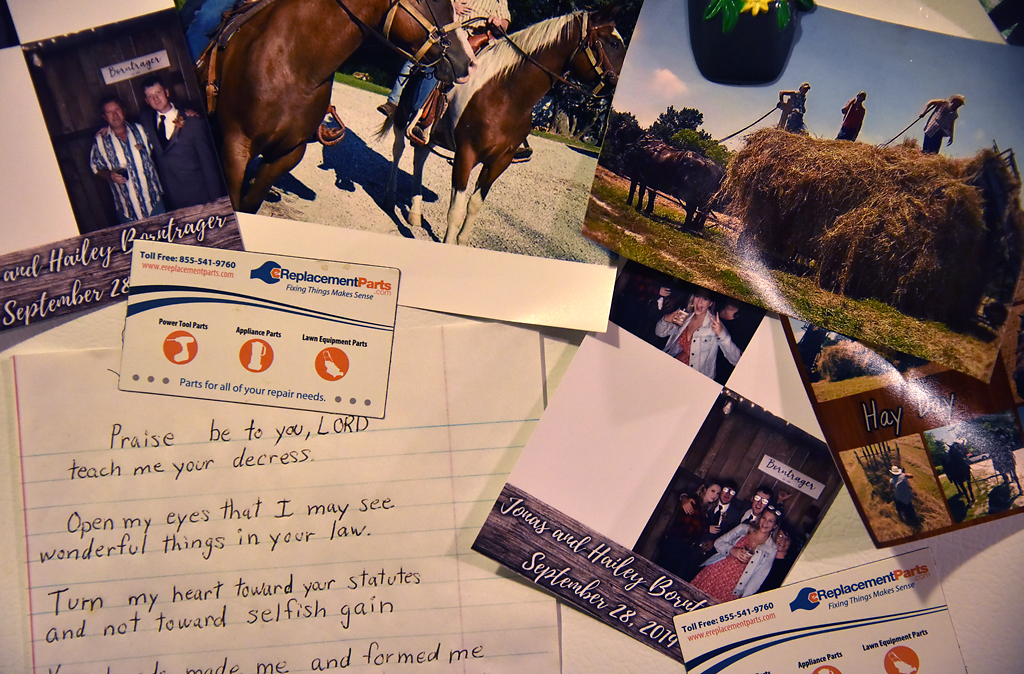 Borntrager
and Hailey Borntrager
September 28
Toll Free: 855-541-9760
www.ereplacementparts.com
eReplacementParts
.com
Fixing Things Makes Sense
Power Tool Parts
Appliance Parts
Lawn Equipment Parts
Parts for all of your repair needs.
Praise be to you, LORD
teach me your decress.
Open my eyes that I may see
wonderful things in your law.
Turn my heart toward your statutes
and not toward selfish gain
made me and formed me
Borntrager
Jonas and Hailey Bornt
September 28, 2019
Hay
Toll Free: 855-541-9760
www.ereplacementparts.com
eReplacementParts
Fixing Things Makes Sense
Appliance Parts
Lawn Equipment Parts